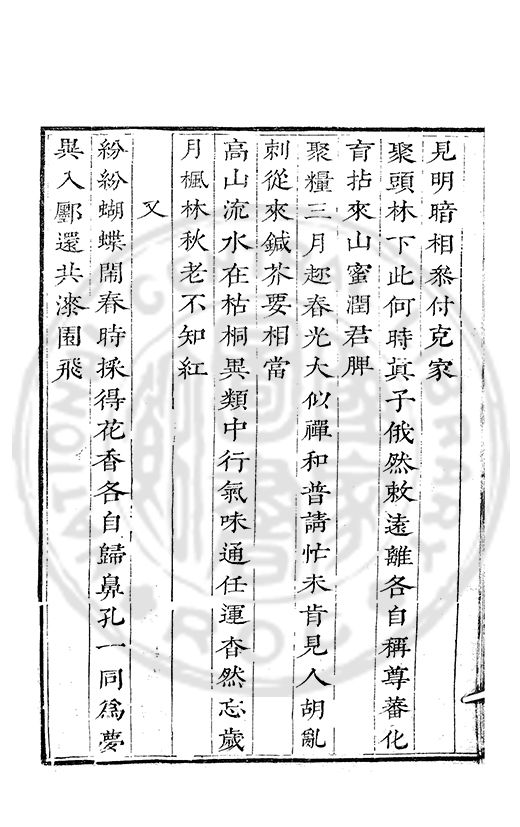 見明暗相叅付克家
聚頭林下此何時眞子俄然敕遠離各自稱尊蕃化
育拈來山蜜潤君脾
聚糧三月趂春光大似禪和普請忙未肯見人胡亂
刺從來鍼芥要相當
高山流水在枯桐異類中行氣味通任運杳然忘歲
月楓林秋老不知紅
又
紛紛蝴蝶鬧春時採得花香各自歸鼻孔一同爲夢
異入酆還共漆園飛